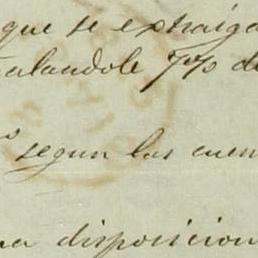 que se extraiga
alandole 7% de
segun las cuen
na disposicion